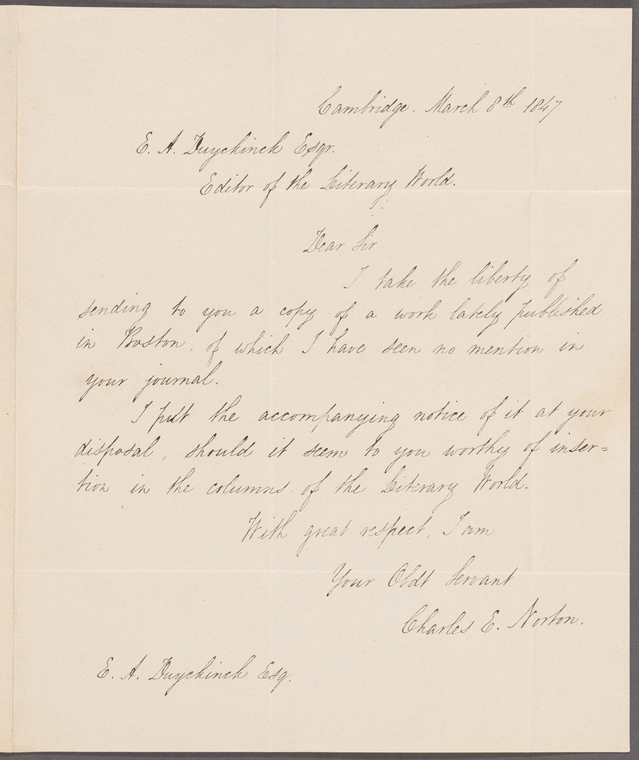 Cambridge. March 8th 1847
E. A. Duyckinck Esqr.
Editor of the Literary World.
Dear Sir
I take the liberty of
sending to you a copy of a work lately published
in Boston, of which I have seen no mention in
your journal.
I put the accompanying notice of it at your
disposal, should it seem to you worthy of inser=
tion in the columns of the Literary World.
With great respect, I am
Your Obdt servant
Charles E. Norton.
E. A. Duyckinck Esq.